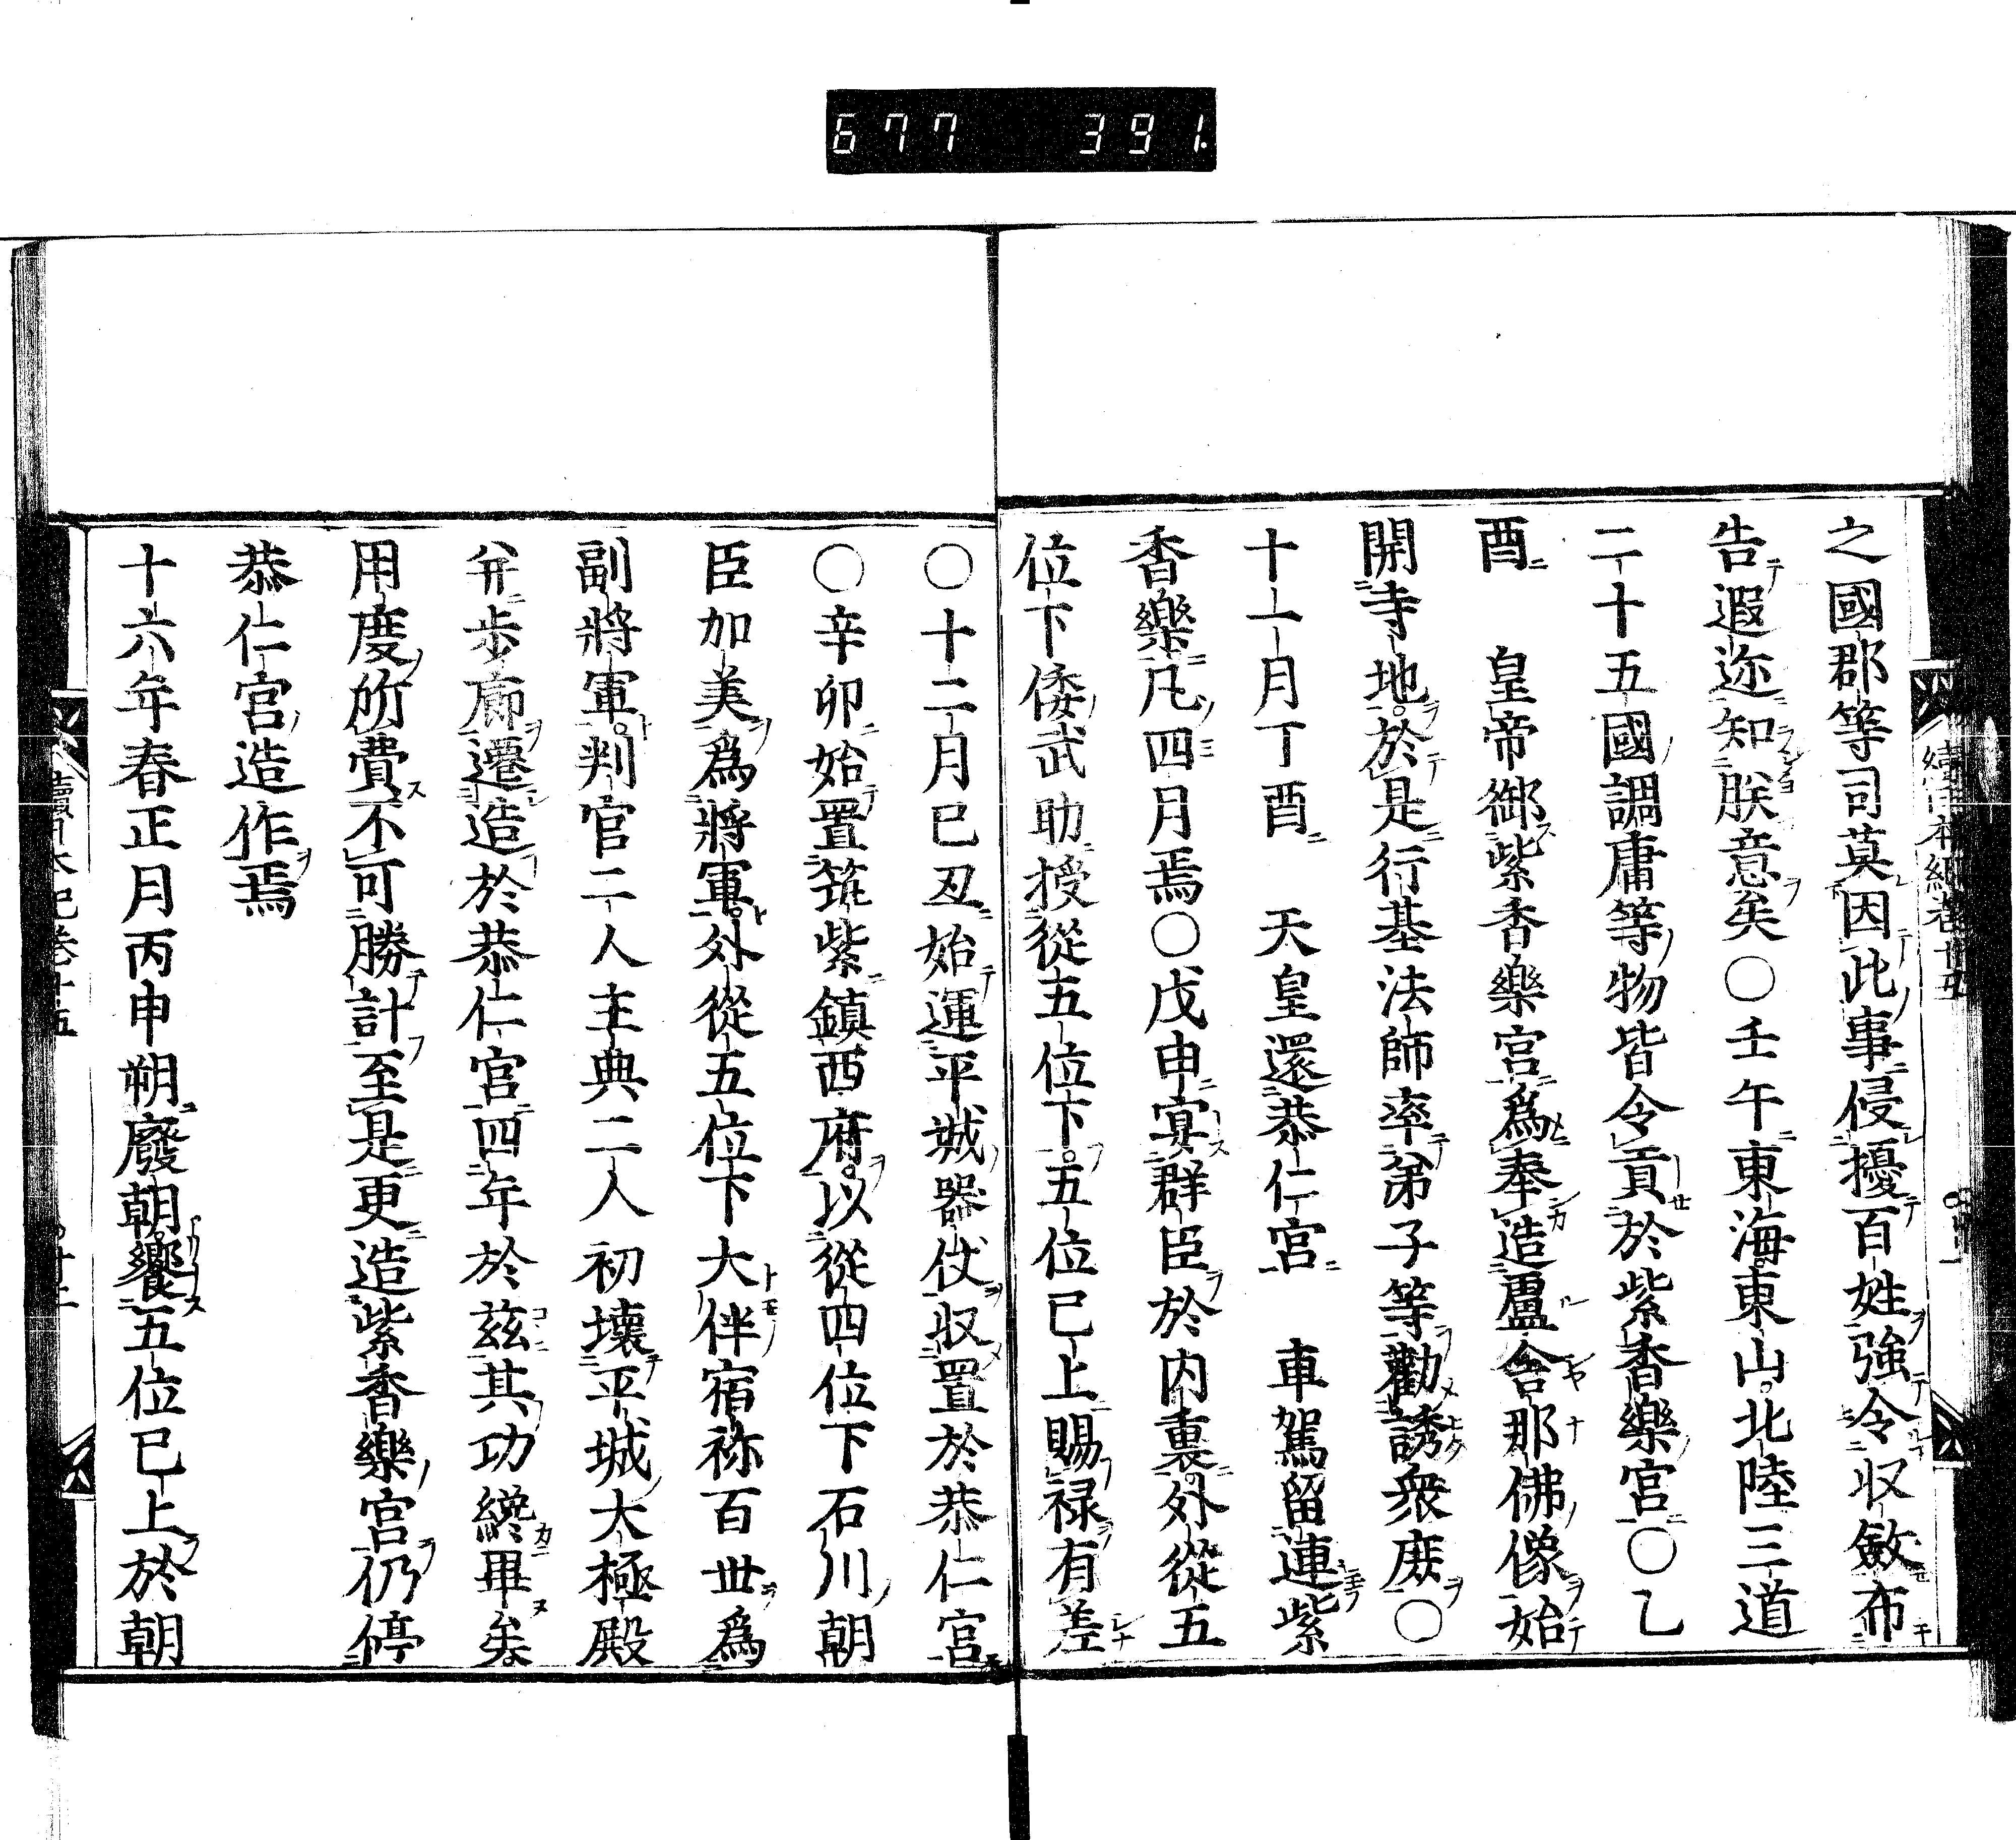 677 391.
之國郡等司莫因此事侵擾百姓強令収斂布
告遐迩知朕意矣○壬午東海東山北陸三道
二十五國調庸等物皆令貢於紫香樂宮○乙
酉 皇帝御紫香樂宮爲奉造盧舎那佛像始
開寺地於是行基法師率弟子等勸誘衆庶○
十一月丁酉 天皇還恭仁宮 車駕留連紫
香樂凡四月焉○戊申宴群臣於内裏外從五
位下倭武助授從五位下五位已上賜禄有差
○十二月己丑始運平城器仗収置於恭仁宮
○辛卯始置筑紫鎮西府以從四位下石川朝
臣加美爲將軍外從五位下大伴宿祢百世爲
副將軍判官二人主典二人初壊平城大極殿
并歩廊遷造於恭仁宮四年於兹其功纔畢矣
用度所費不可勝計至是更造紫香樂宮仍停
恭仁宮造作焉
十六年春正月丙申朔廢朝饗五位已上於朝